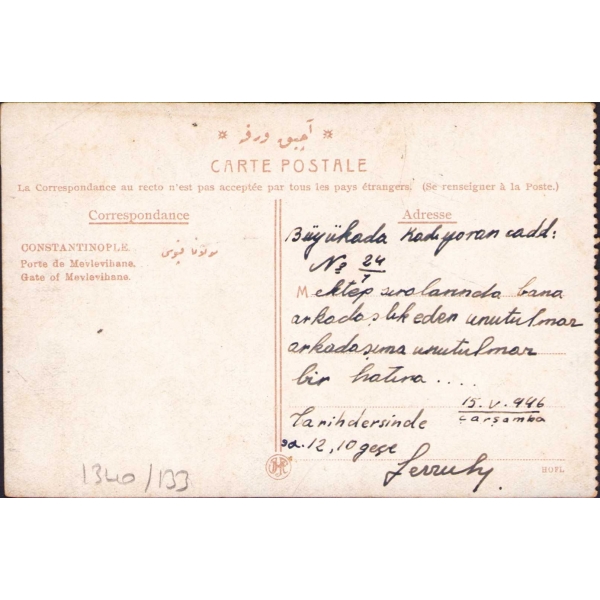 * آچيق ورقه *
CARTE POSTALE
La Correspondance au recto n'est pas acceptée par tous les pays étrangers. (Se renseigner à la Poste.)
Correspondance
CONSTANTINOPLE.
Porte de Mevlevihane.
Gate of Mevlevihane.
مولوانا قپوسى
Adresse
Büyükada Kadıyoran cadd:
No 24/1
Mektep sıralarında bana
arkadaşlık eden unutulmaz
arkadaşıma unutulmaz
bir hatıra ....
15.V.946
Çarşamba
Tarih dersinde
sa. 12,10 geçe
Ferruh
1340/133
HOFL